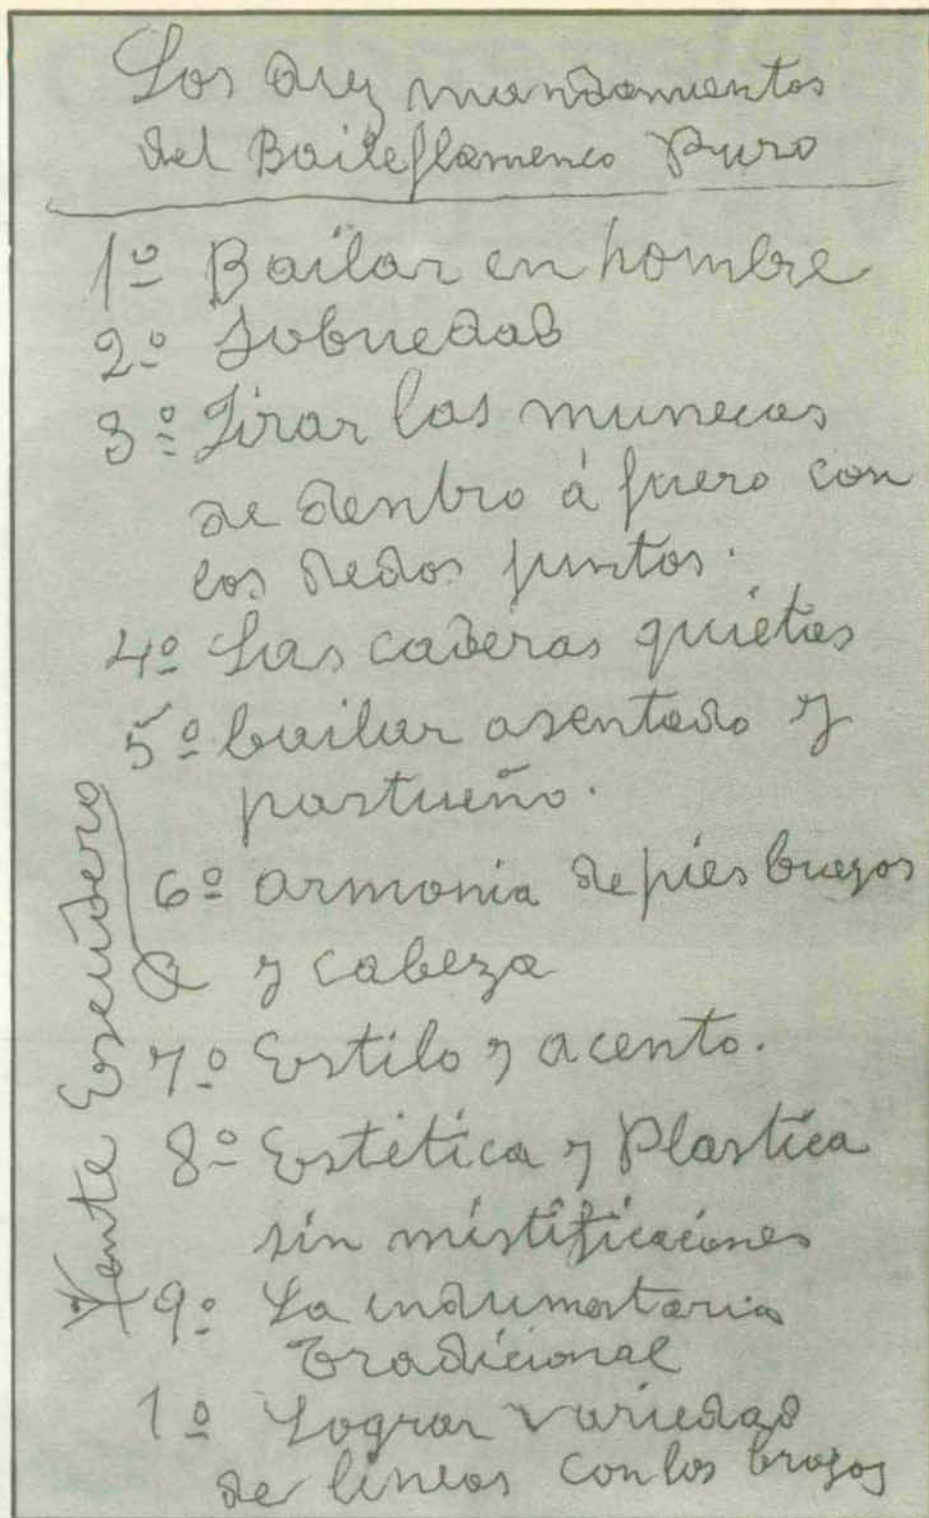 Los diez mandamientos
del Baile flamenco Puro
1º Bailar en hombre
2º Sobriedad
3º Jirar las munecas
de dentro á fuera con
los dedos juntos.
4º Las caderas quietas
5º bailar asentado y
pastueño.
6º armonia de pies brazos
y cabeza
7º Estilo y acento.
8º Estética y Plastica
sin mistificaciones
9º La indumentaria
tradicional
1º Lograr variedad
de lineas con los brazos
Escudero